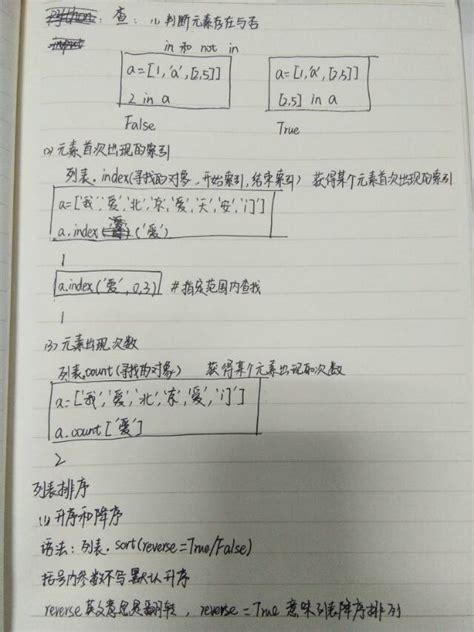 查: (1) 判断元素存在与否
in 和 not in
a=[1,'a',[2,5]] a=[1,'a',[2,5]]
2 in a [2,5] in a
False True
(2) 元素首次出现的索引
列表.index(寻找的对象,开始索引,结束索引) 获得某个元素首次出现的索引
a=['我','爱','北','京','爱','天','安','门']
a.index('爱')
1
a.index('爱',0,3) #指定范围内查找
1
(3) 元素出现次数
列表.count(寻找的对象) 获得某个元素出现的次数
a=['我','爱','北','京','爱','门']
a.count['爱']
2
列表排序
(1) 升序和降序
语法: 列表.sort(reverse=True/False)
括号内参数不写默认升序
reverse英文意思是翻转, reverse=True 意味列表降序排列